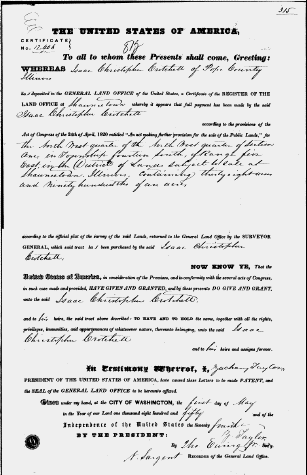 315
THE UNITED STATES OF AMERICA,
CERTIFICATE
No.
To all to whom these Presents shall come, Greeting:
WHEREAS Isaac Christopher Crotchett of Pope County
Illinois
has deposited in the GENERAL LAND OFFICE of the United States, a Certificate of the REGISTER OF THE
LAND OFFICE at Shawneetown whereby it appears that full payment has been made by the said
Isaac Christopher Crotchett
according to the provisions of the
Act of Congress of the 24th of April, 1820 entitled "An act making further provision for the sale of the Public Lands," for
the North West quarter of the North West quarter of Section
One, in Township fourteen South, of Range five
East, in the District of Lands subject to sale at
Shawneetown Illinois, containing thirty eight acres
and Ninety hundredths of an acre,
according to the official plat of the survey of the said Lands, returned to the General Land Office by the SURVEYOR
GENERAL, which said tract has been purchased by the said Isaac Christopher
Crotchett,
NOW KNOW YE, That the
United States of America, in consideration of the Premises, and in conformity with the several acts of Congress,
in such case made and provided, HAVE GIVEN AND GRANTED, and by these presents DO GIVE AND GRANT,
unto the said Isaac Christopher Crotchett
and to his heirs, the said tract above described: TO HAVE AND TO HOLD the same, together with all the rights,
privileges, immunities, and appurtenances of whatsoever nature, thereunto belonging, unto the said Isaac
Christopher Crotchett
and to his heirs and assigns forever.
In Testimony Whereof, I, Zachary Taylor
PRESIDENT OF THE UNITED STATES OF AMERICA, have caused these Letters to be made PATENT, and
the SEAL of the GENERAL LAND OFFICE to be hereunto affixed.
Given under my hand, at the CITY OF WASHINGTON, the first day of May
in the Year of our Lord one thousand eight hundred and fifty and of the
Independence of the United States the seventy fourth
BY THE PRESIDENT: Z. Taylor
By Tho Ewing Jr. Sec'y.
N. Sargent RECORDER OF THE GENERAL LAND OFFICE.